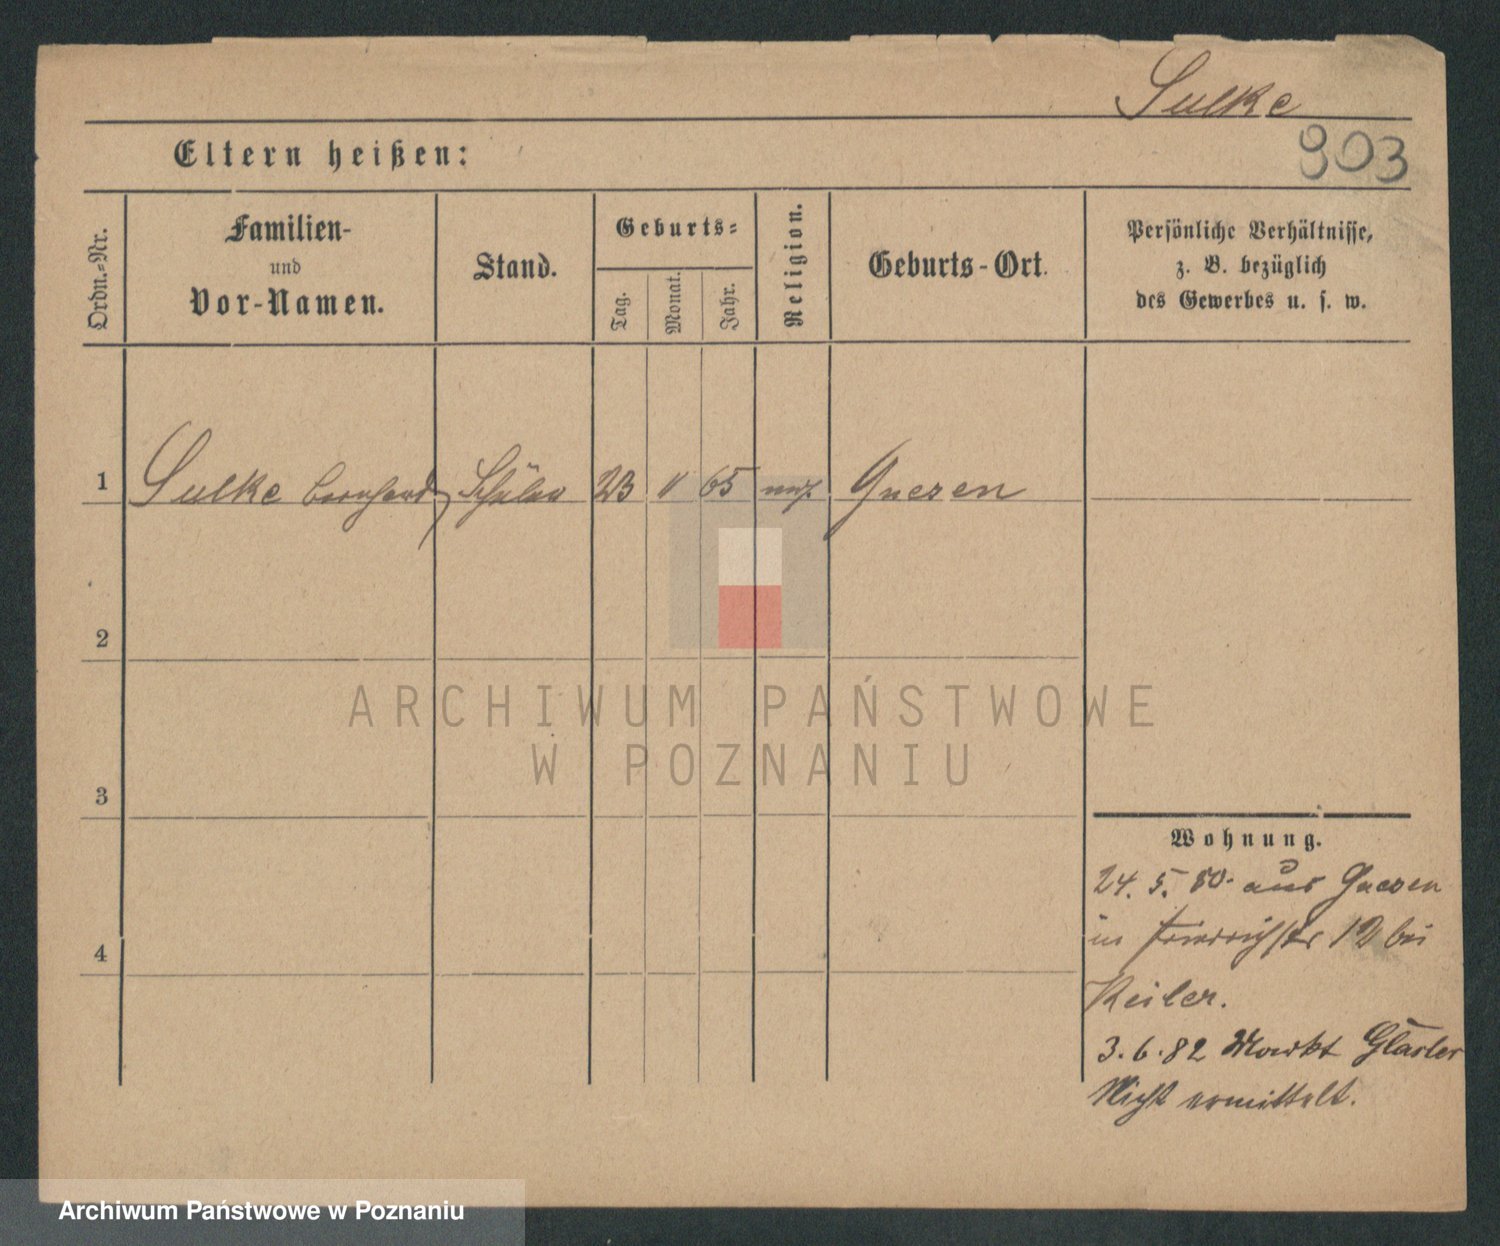 Sulke
903
Eltern heißen:
Ordn.-Nr.
Familien-
und
Vor-Namen.
Stand.
Geburts-
Tag.
Monat.
Jahr.
Religion.
Geburts-Ort.
Persönliche Verhältnisse,
z. B. bezüglich
des Gewerbes u. s. w.
1 Sulke Bernhard Schüler 23 65 Gnesen
2
3
4
ARCHIWUM PAŃSTWOWE
W POZNANIU
Wohnung.
24. 5. 80. aus Gnesen
in Friedrichstr 12 bei
Keiler.
3. 6. 82 Markt
Nicht ermittelt.
Archiwum Państwowe w Poznaniu